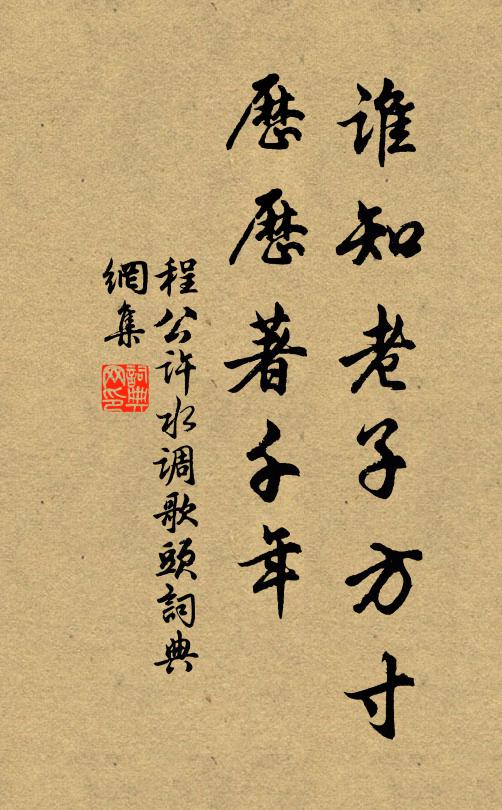 谁知老子方寸
歷歷著千年
程公许水调歌頭詞典
網集
詞典
网印